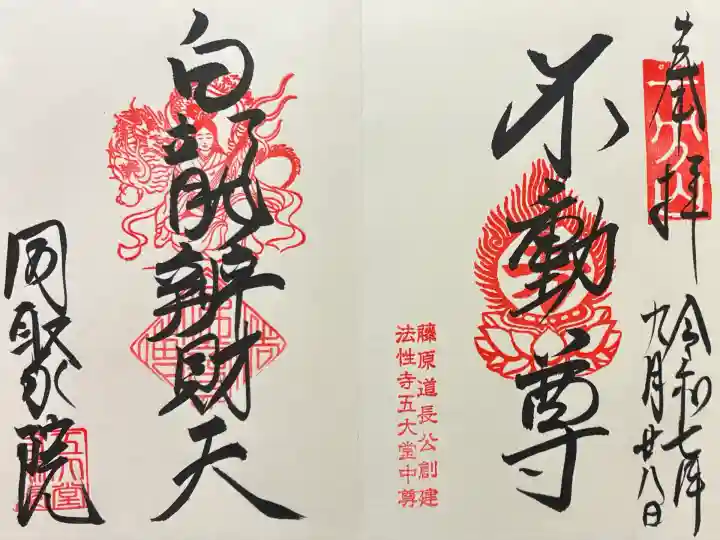 奉拝
令和七年
九月廿八日
不動尊
藤原道長公創建
法性寺五大堂中尊
白龍辨財天
同聚院
五大堂